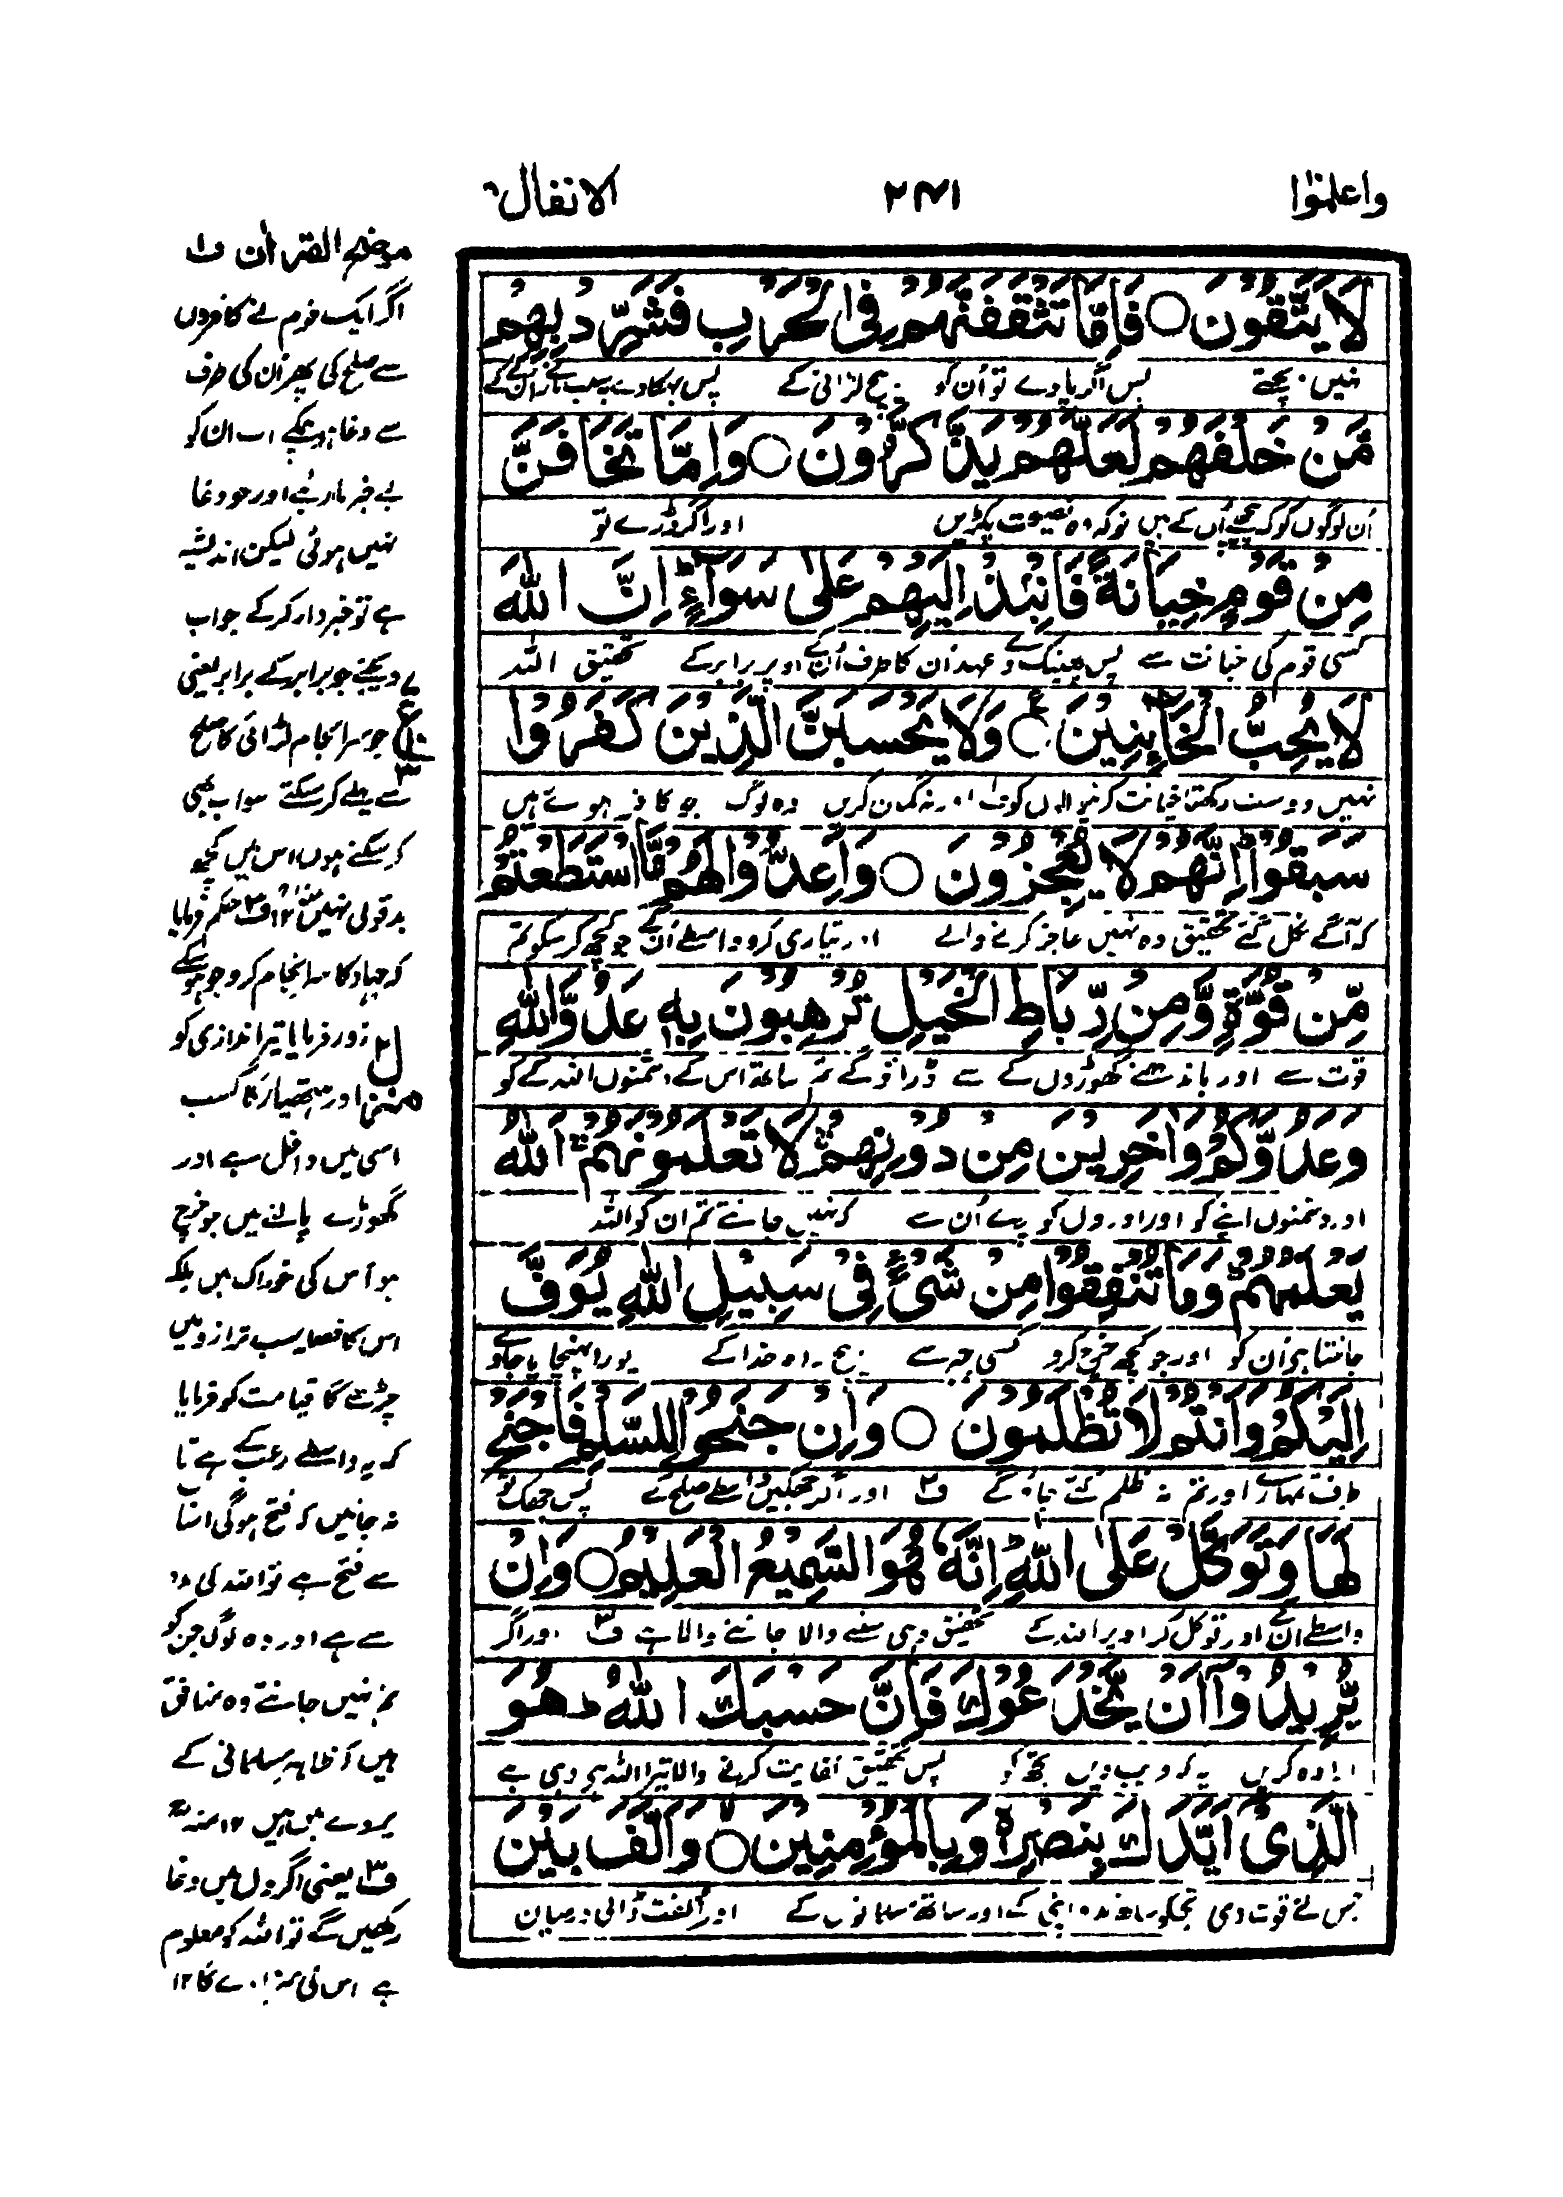 واعلموا
۲۴۱
الانفال
لَا يَتَّقُونَ ○ فَاِمَّا تَثْقَفَنَّهُمْ فِي الْحَرْبِ فَشَرِّدْ بِهِمْ
نہیں بچتے پس اگر پاوے تو اُن کو بیچ لڑائی کے پس بھگا دے بسبب مار ان کے کے
مَّنْ خَلْفَهُمْ لَعَلَّهُمْ يَذَّكَّرُوْنَ ○ وَاِمَّا تَخَافَنَّ
اُن لوگوں کو کہ پیچھے اُن کے ہیں توکہ وہ نصیحت پکڑیں اور اگر ڈرے تو
مِنْ قَوْمٍ خِيَانَةً فَانْبِذْ اِلَيْهِمْ عَلٰى سَوَآءٍ ؕ اِنَّ اللّٰهَ
کسی قوم کی خیانت سے پس پھینک دے عہد اُن کا طرف اُن کے اوپر برابر کے تحقیق اللہ
لَا يُحِبُّ الْخَآئِنِيْنَ ○ وَلَا يَحْسَبَنَّ الَّذِيْنَ كَفَرُوْا
نہیں دوست رکھتا خیانت کرنیوالوں کو ف۱ اور نہ گمان کریں وہ لوگ جو کافر ہوئے ہیں
سَبَقُوْا ؕ اِنَّهُمْ لَا يُعْجِزُوْنَ ○ وَاَعِدُّوْا لَهُمْ مَّا اسْتَطَعْتُمْ
کہ آگے نکل گئے تحقیق وہ نہیں عاجز کرنے والے اور تیاری کرو واسطے اُن کے جو کچھ کر سکو تم
مِّنْ قُوَّةٍ وَّمِنْ رِّبَاطِ الْخَيْلِ تُرْهِبُوْنَ بِهٖ عَدُوَّ اللّٰهِ
قوت سے اور باندھنے گھوڑوں کے سے ڈراؤ گے تم ساتھ اس کے دشمنوں اللہ کے کو
وَعَدُوَّكُمْ وَاٰخَرِيْنَ مِنْ دُوْنِهِمْ ۚ لَا تَعْلَمُوْنَهُمْ ۚ اَللّٰهُ
اور دشمنوں اپنے کو اور اوروں کو پرے اُن سے کہ نہیں جانتے تم ان کو اللہ
يَعْلَمُهُمْ ؕ وَمَا تُنْفِقُوْا مِنْ شَيْءٍ فِيْ سَبِيْلِ اللّٰهِ يُوَفَّ
جانتا ہے اُن کو اور جو کچھ خرچ کرو کسی چیز سے بیچ راہ خدا کے پورا پہنچایا جاوے گا
اِلَيْكُمْ وَاَنْتُمْ لَا تُظْلَمُوْنَ ○ وَاِنْ جَنَحُوْا لِلسَّلْمِ فَاجْنَحْ
طرف تمہارے اور تم نہ ظلم کئے جاؤ گے ف۲ اور اگر جھکیں واسطے صلح کے پس جھک تو
لَهَا وَتَوَكَّلْ عَلَى اللّٰهِ ؕ اِنَّهٗ هُوَ السَّمِيْعُ الْعَلِيْمُ ○ وَاِنْ
واسطے اُن کے اور توکل کر اوپر اللہ کے تحقیق وہی سننے والا جاننے والا ہے ف۳ اور اگر
يُّرِيْدُوْۤا اَنْ يَّخْدَعُوْكَ فَاِنَّ حَسْبَكَ اللّٰهُ ؕ هُوَ
ارادہ کریں یہ کہ فریب دیں تجھ کو پس تحقیق کفایت کرنے والا تیرا اللہ ہے وہی ہے
الَّذِيْۤ اَيَّدَكَ بِنَصْرِهٖ وَبِالْمُؤْمِنِيْنَ ○ وَاَلَّفَ بَيْنَ
جس نے قوت دی تجھکو ساتھ مدد اپنی کے اور ساتھ مسلمانوں کے اور اُلفت ڈالی درمیان
موضح القرآن ف۱
اگر ایک قوم نے کافروں
سے صلح کی پھر ان کی طرف
سے دغا ہو چکے اب ان کو
بے خبر ماریئے اور جو دغا
نہیں ہوئی لیکن اندیشہ
ہے تو خبردار کر کے جواب
دیجئے جو برابر کے برابر یعنی
جو سرانجام لڑائی کا صلح
سے پہلے کر سکتے سو اب بھی
کر سکتے ہوں اس میں کچھ
بد قولی نہیں ۱۲ ف۲ حکم فرمایا
کہ جہاد کا سرانجام کرو جو ہو سکے
زور فرمایا تیر اندازی کو
اور ہتھیار کا کسب
اسی میں داخل ہے اور
گھوڑے پالنے میں جو خرچ
ہو اُس کی خوراک میں بلکہ
اس کا فضلہ سب ترازو میں
چڑھے گا قیامت کو فرمایا
کہ یہ واسطے رعب کے ہے تا
نہ جانیں کہ فتح ہوگی اسباب
سے فتح ہے تو اللہ کی مدد
سے ہے اور وہ لوگ جن کو
تم نہیں جانتے وہ منافق
ہیں کہ ظاہر مسلمانی کے
پردے میں ہیں ۱۲ منہ
ف۳ یعنی اگر دل میں دغا
رکھیں گے تو اللہ کو معلوم
ہے اس کی سزا دے گا ۱۲
ع
۳
منزل ۲